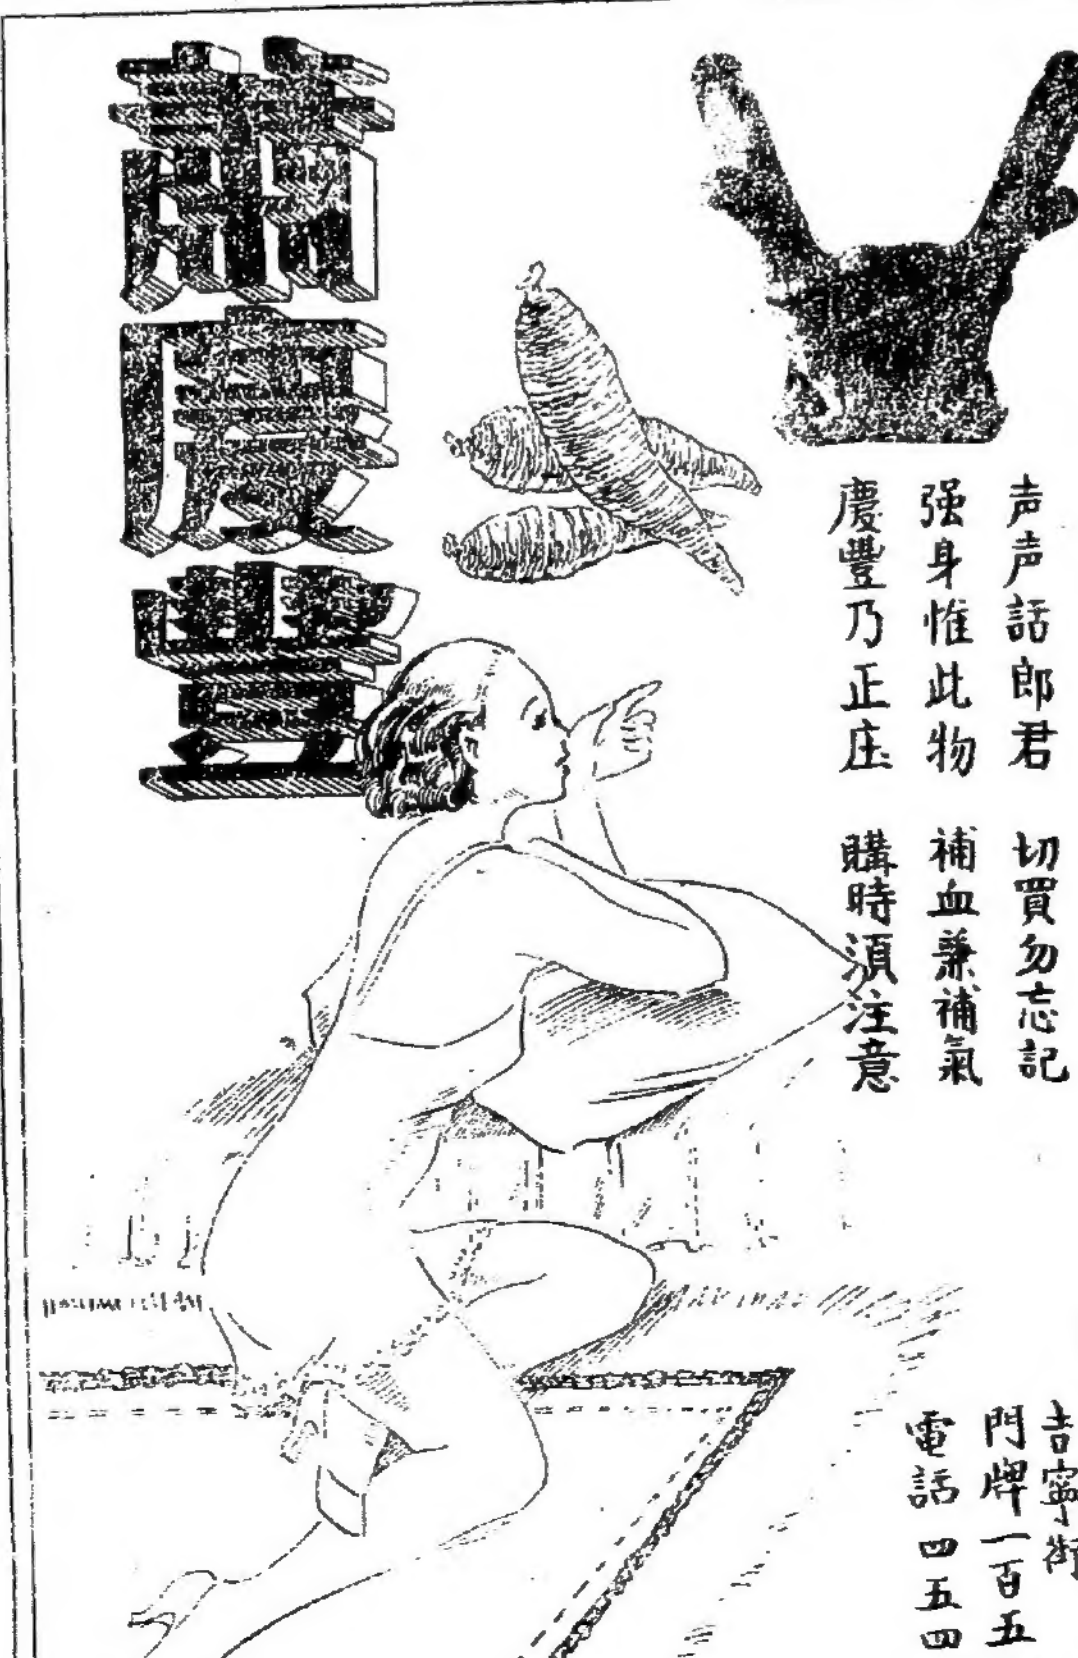 蕭慶豐
声声話郎君 切買勿忘記
强身惟此物 補血兼補氣
慶豐乃正庄 購時須注意
吉寧街
門牌一百五
電話 四五四